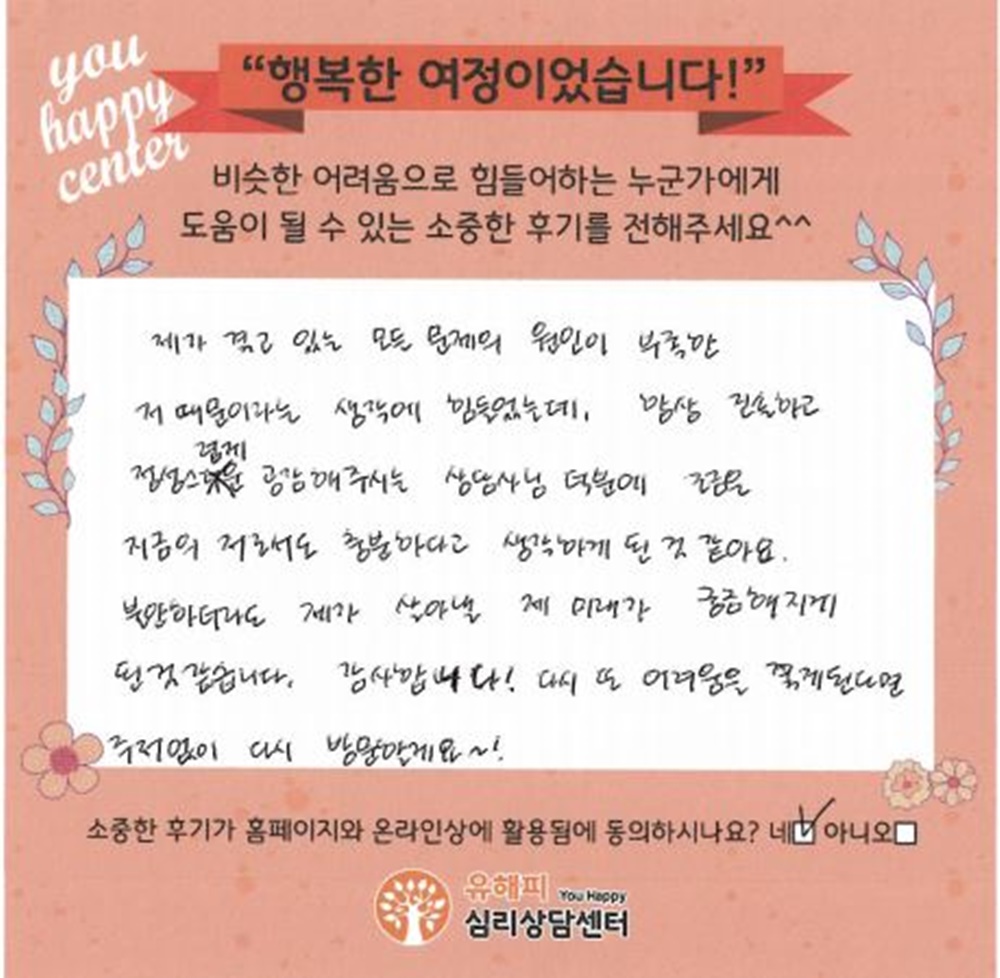 you
happy
center
“행복한 여정이었습니다!”
비슷한 어려움으로 힘들어하는 누군가에게
도움이 될 수 있는 소중한 후기를 전해주세요^^
제가 겪고 있는 모든 문제의 원인이 부족한
저 때문이라는 생각에 힘들었는데, 항상 진솔하고
정성스럽게 공감해주시는 상담사님 덕분에 조금은
지금의 저로서도 충분하다고 생각하게 된 것 같아요.
불안하더라도 제가 살아낼 제 미래가 궁금해지게
된 것 같습니다. 감사합니다! 다시 또 어려움을 겪게된다면
주저없이 다시 방문할게요~!
소중한 후기가 홈페이지와 온라인상에 활용됨에 동의하시나요? 네☑ 아니오☐
유해피 You Happy
심리상담센터